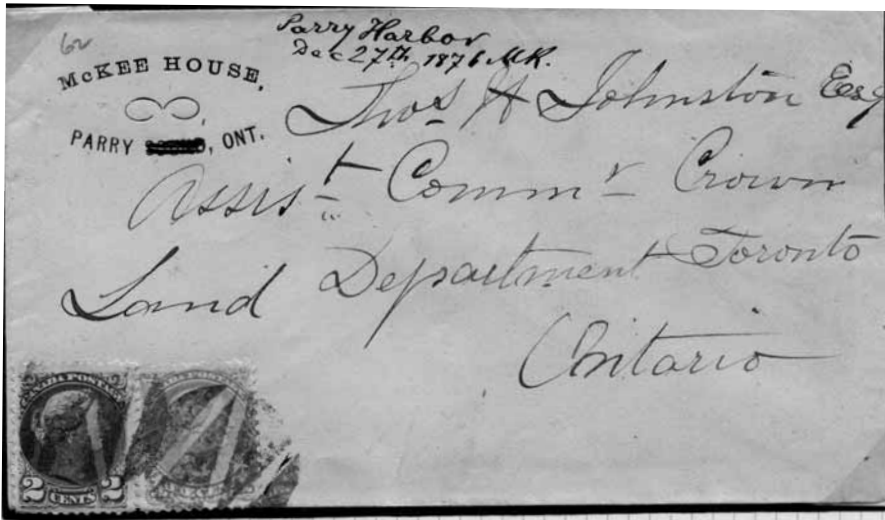 62
Parry Harbor
Dec 27th. 1876 MR.
McKEE HOUSE,
PARRY , ONT.
Thos H Johnston Esq
Assist Commr Crown
Land Department Toronto
Ontario
CANADA POSTAGE
2 CENTS 2